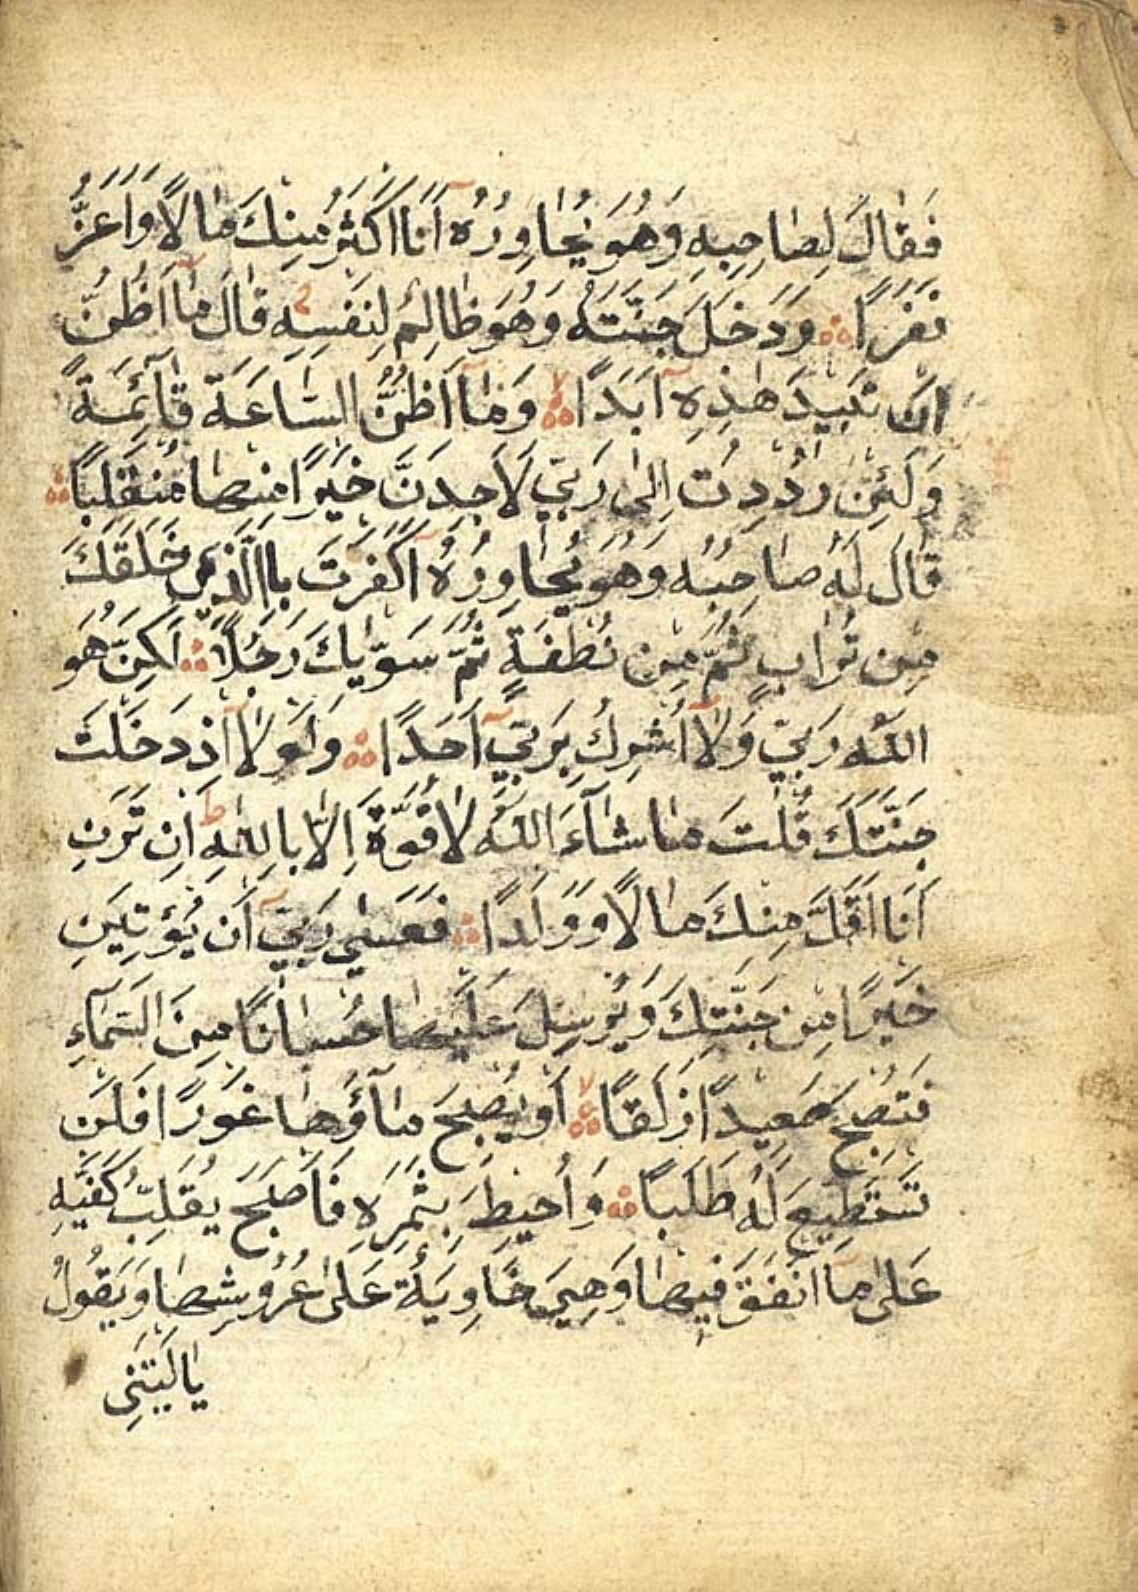 فَقَالَ لِصَاحِبِهِ وَهُوَ يُحَاوِرُهُ آنَا اَكْثَرُ مِنْكَ مَالًا وَاَعَزُّ
نَفَرًا وَدَخَلَ جَنَّتَهُ وَهُوَ ظَالِمٌ لِنَفْسِهِ قَالَ مَا اَظُنُّ
اَنْ تَبِيدَ هٰذِهِ آبَدًا وَمَا اَظُنُّ السَّاعَةَ قَائِمَةً
وَلَئِنْ رُدِدْتُ اِلٰى رَبِّي لَاَجِدَنَّ خَيْرًا مِنْهَا مُنْقَلَبًا
قَالَ لَهُ صَاحِبُهُ وَهُوَ يُحَاوِرُهُ آكَفَرْتَ بِاالَّذِي خَلَقَكَ
مِنْ تُرَابٍ ثُمَّ مِنْ نُطْفَةٍ ثُمَّ سَوّٰيكَ رَجُلًا لَكِنَّ هُوَ
اللّٰهُ رَبِّي وَلَا اُشْرِكُ بِرَبِّي آحَدًا وَلَوْلَا اِذْ دَخَلْتَ
جَنَّتَكَ قُلْتَ مَا شَآءَ اللّٰهُ لَا قُوَّةَ اِلَّا بِاللّٰهِ اِنْ تَرَنِ
اَنَا اَقَلَّ مِنْكَ مَالًا وَوَلَدًا فَعَسٰي رَبِّي آنْ يُؤْتِيَنِ
خَيْرًا مِنْ جَنَّتِكَ وَيُرْسِلَ عَلَيْهَا حُسْبَانًا مِنَ السَّمَآءِ
فَتُصْبِحَ صَعِيدًا زَلَقًا اَوْ يُصْبِحَ مَآؤُهَا غَوْرًا فَلَنْ
تَسْتَطِيعَ لَهُ طَلَبًا وَاُحِيطَ بِثَمَرِهِ فَاَصْبَحَ يُقَلِّبُ كَفَّيْهِ
عَلٰى مَآ اَنْفَقَ فِيهَا وَهِيَ خَاوِيَةٌ عَلٰى عُرُوشِهَا وَيَقُولُ
يَا لَيْتَنِي